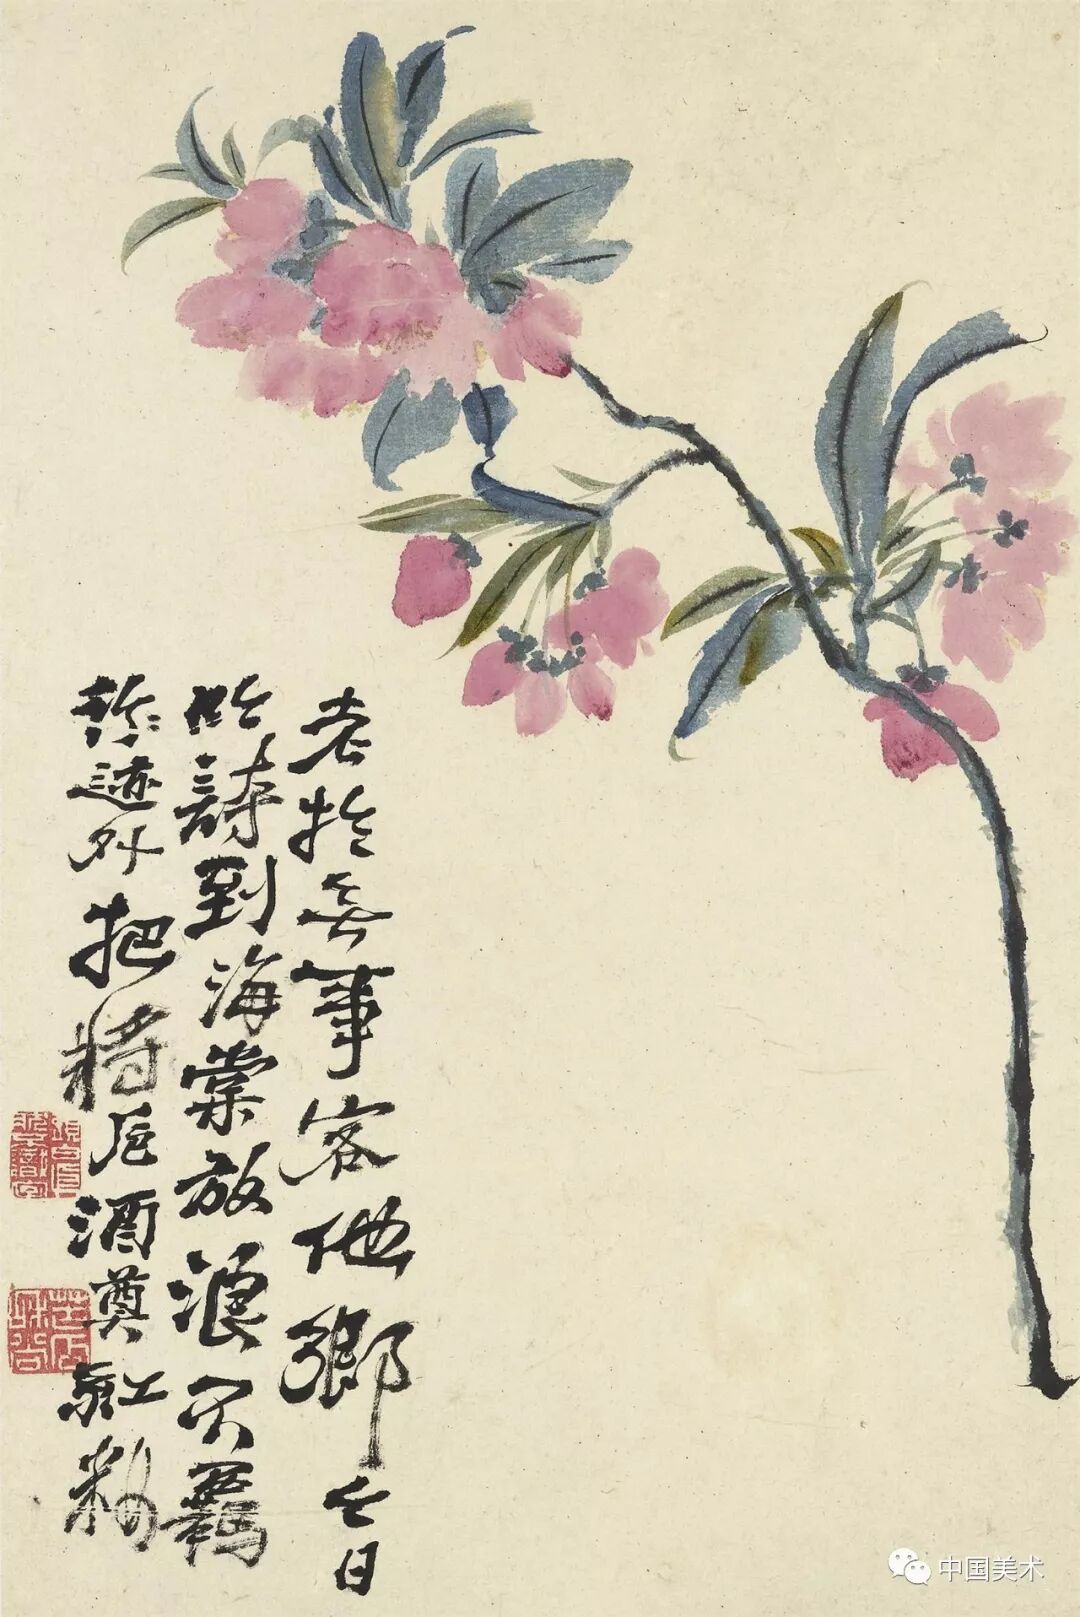 老於無事客他鄉今日
吟詩到海棠放浪不羈
迹外把將卮酒奠紅粧
中国美术